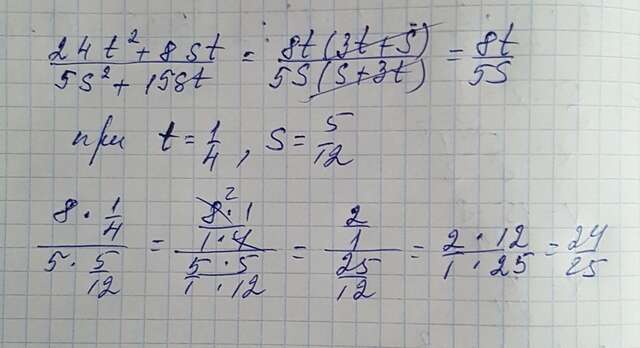 (24t² + 8st)/(5s² + 15st) = (8t(3t+s))/(5s(s+3t)) = 8t/5s
при t = 1/4, s = 5/12
(8 · 1/4)/(5 · 5/12) = ((8² · 1)/(1 · 4))/((5 · 5)/(1 · 12)) = (2/1)/(25/12) = (2 · 12)/(1 · 25) = 24/25